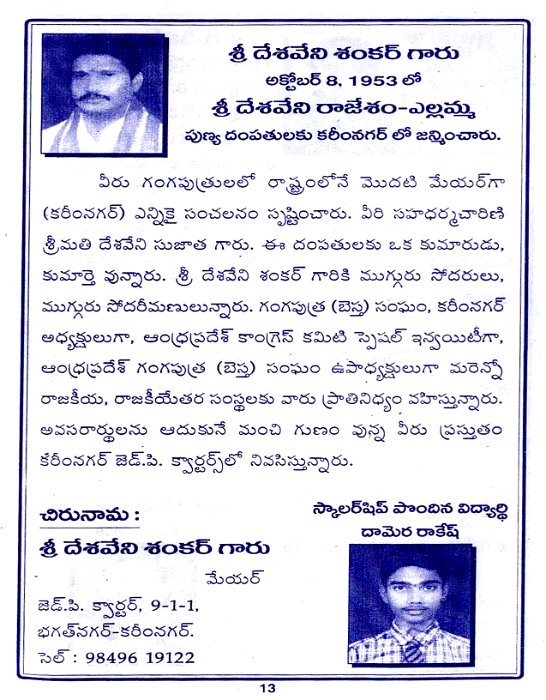 శ్రీ దేశవేని శంకర్ గారు
అక్టోబర్ 8, 1953 లో
శ్రీ దేశవేని రాజేశం-ఎల్లమ్మ
పుణ్య దంపతులకు కరీంనగర్ లో జన్మించారు.
వీరు గంగపుత్రులలో రాష్ట్రంలోనే మొదటి మేయర్‌గా
(కరీంనగర్) ఎన్నికై సంచలనం సృష్టించారు. వీరి సహధర్మచారిణి
శ్రీమతి దేశవేని సుజాత గారు. ఈ దంపతులకు ఒక కుమారుడు,
కుమార్తె వున్నారు. శ్రీ దేశవేని శంకర్ గారికి ముగ్గురు సోదరులు,
ముగ్గురు సోదరీమణులున్నారు. గంగపుత్ర (బెస్త) సంఘం, కరీంనగర్
అధ్యక్షులుగా, ఆంధ్రప్రదేశ్ కాంగ్రెస్ కమిటి స్పెషల్ ఇన్వయిటీగా,
ఆంధ్రప్రదేశ్ గంగపుత్ర (బెస్త) సంఘం ఉపాధ్యక్షులుగా మరెన్నో
రాజకీయ, రాజకీయేతర సంస్థలకు వారు ప్రాతినిధ్యం వహిస్తున్నారు.
అవసరార్థులను ఆదుకునే మంచి గుణం వున్న వీరు ప్రస్తుతం
కరీంనగర్ జెడ్.పి. క్వార్టర్స్‌లో నివసిస్తున్నారు.
చిరునామ :
శ్రీ దేశవేని శంకర్ గారు
మేయర్
జెడ్.పి. క్వార్టర్, 9-1-1,
భగత్‌నగర్-కరీంనగర్.
సెల్ : 98496 19122
స్కాలర్‌షిప్ పొందిన విద్యార్థి
దామెర రాకేష్
13